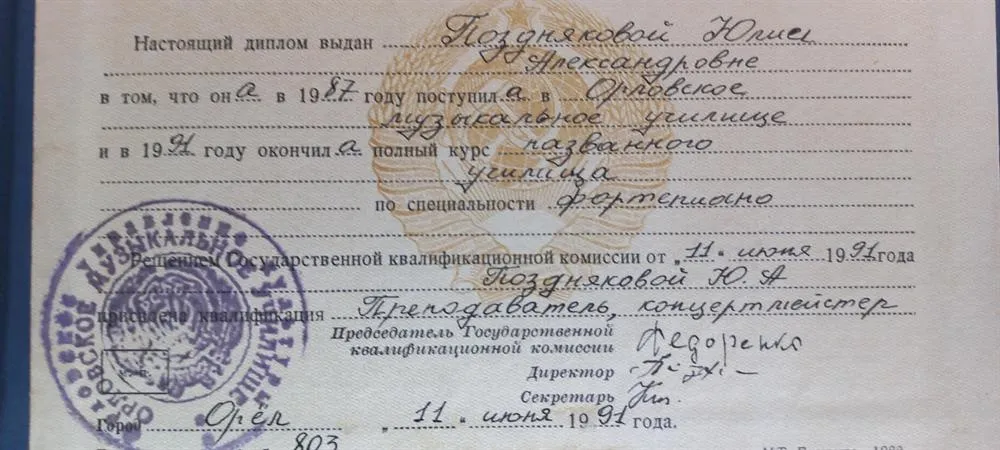 Настоящий диплом выдан Поздняковой Юлии
Александровне
в том, что он а в 1987 году поступил а в Орловское
музыкальное училище
и в 1991 году окончил а полный курс названного
училища
по специальности фортепиано
Решением Государственной квалификационной комиссии от „11" июня 1991 года
Поздняковой Ю. А
присвоена квалификация Преподаватель, концертмейстер
Председатель Государственной
квалификационной комиссии
Директор
Секретарь
Город Орёл „11" июня 1991 года.
803
ОРЛОВСКОЕ МУЗЫКАЛЬНОЕ УЧИЛИЩЕ